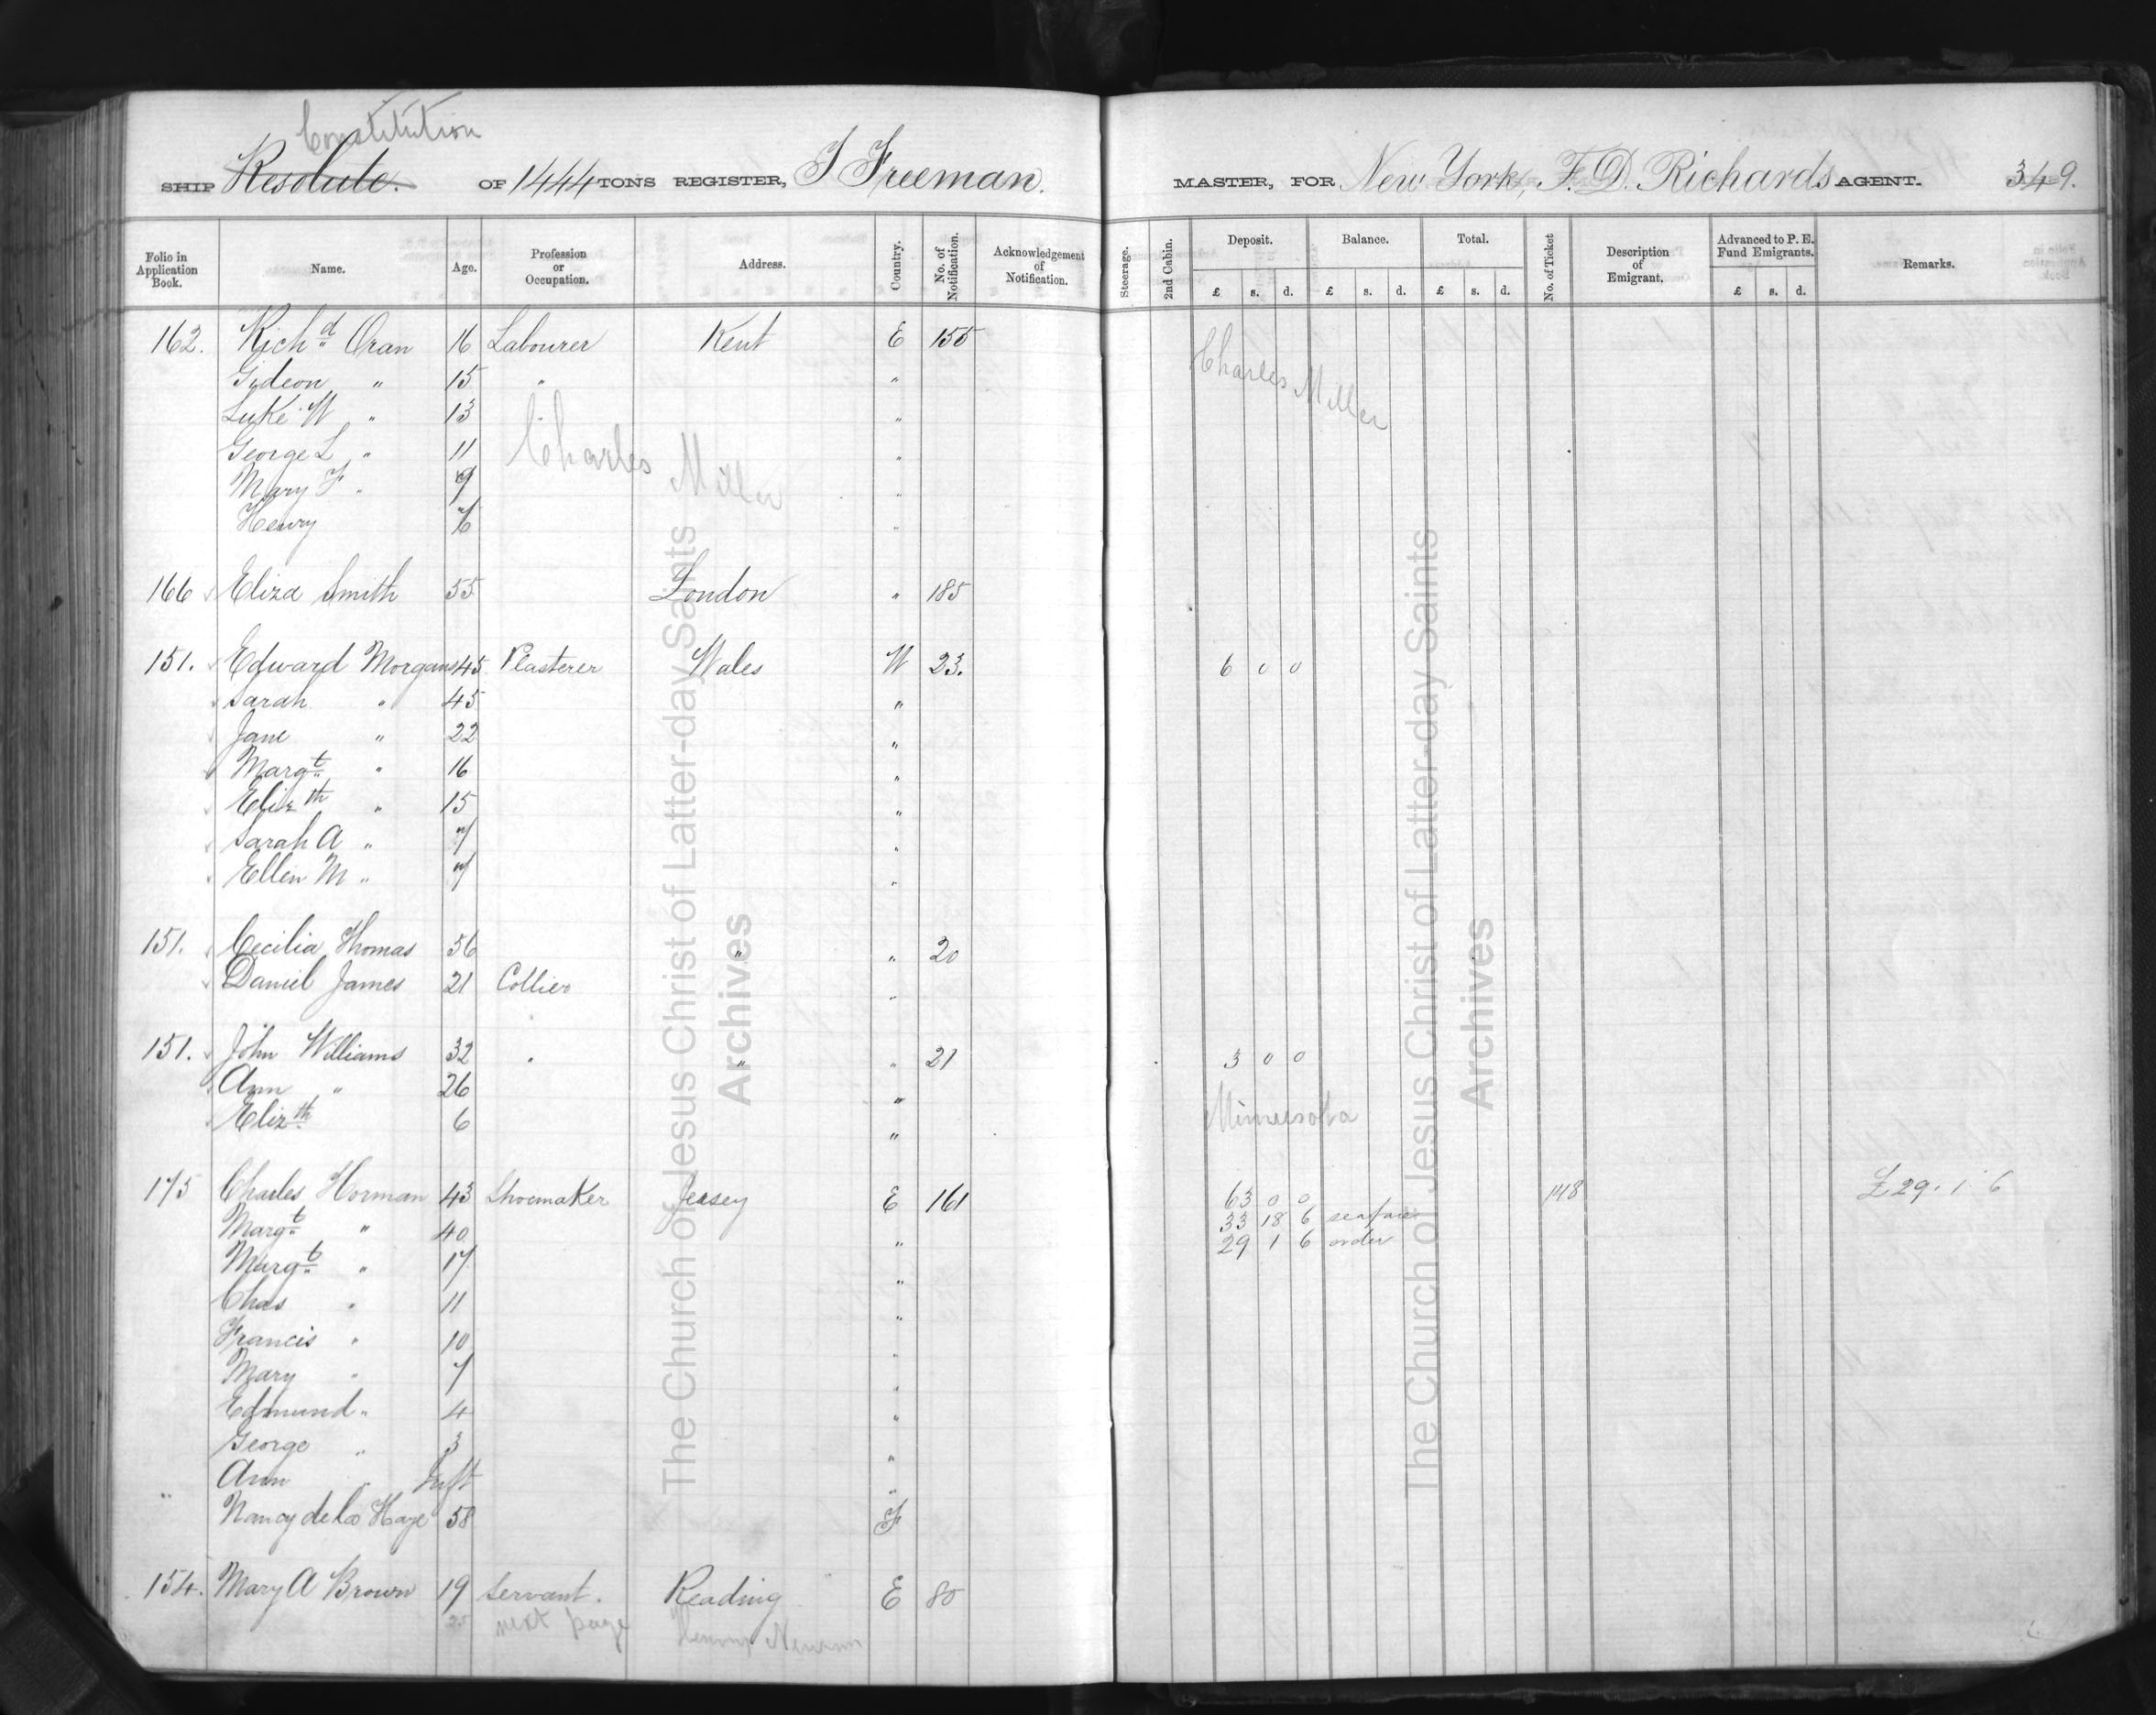 Constitution
SHIP Resolute. OF 1444 TONS REGISTER, J Freeman. MASTER, FOR New York, F. D. Richards AGENT. 349.
Folio in Application Book. Name. Age. Profession or Occupation. Address. Country. No. of Notification. Acknowledgement of Notification. Steerage. 2nd Cabin. Deposit. £ s. d. Balance. £ s. d. Total. £ s. d. No. of Ticket Description of Emigrant. Advanced to P. E. Fund Emigrants. £ s. d. Remarks.
162. Richd Oran 16 Labourer Kent E 155
Gideon " 15 " "
Charles Miller
Luke W " 13 "
George L " 11 "
Charles Miller
Mary F " 9 "
Henry 6 "
166 Eliza Smith 55 London " 185
151. Edward Morgans 45 Plasterer Wales W 23. 6 0 0
Sarah " 45 "
Jane " 22 "
Margt " 16 "
Elizth " 15 "
Sarah A " 7 "
Ellen M " 7 "
151. Cecilia Thomas 56 " " 20
Daniel James 21 Collier "
151. John Williams 32 " " " 21 3 0 0
Ann " 26 "
Elizth 6 "
Minnesota
175 Charles Horman 43 Shoemaker Jersey E 161 63 0 0 £29. 1. 6
Margt " 40 " 33 18 6 seafare
29 1 6 order
Margt " 17 "
Chas " 11 "
Francis " 10 "
Mary " 7 "
Edmund " 4 "
George " 3 "
Ann " Inft "
" Nancy de la Haye 58 F
154. Mary A Brown 19 Servant. Reading E 80
25 next page
The Church of Jesus Christ of Latter-day Saints
Archives
The Church of Jesus Christ of Latter-day Saints
Archives